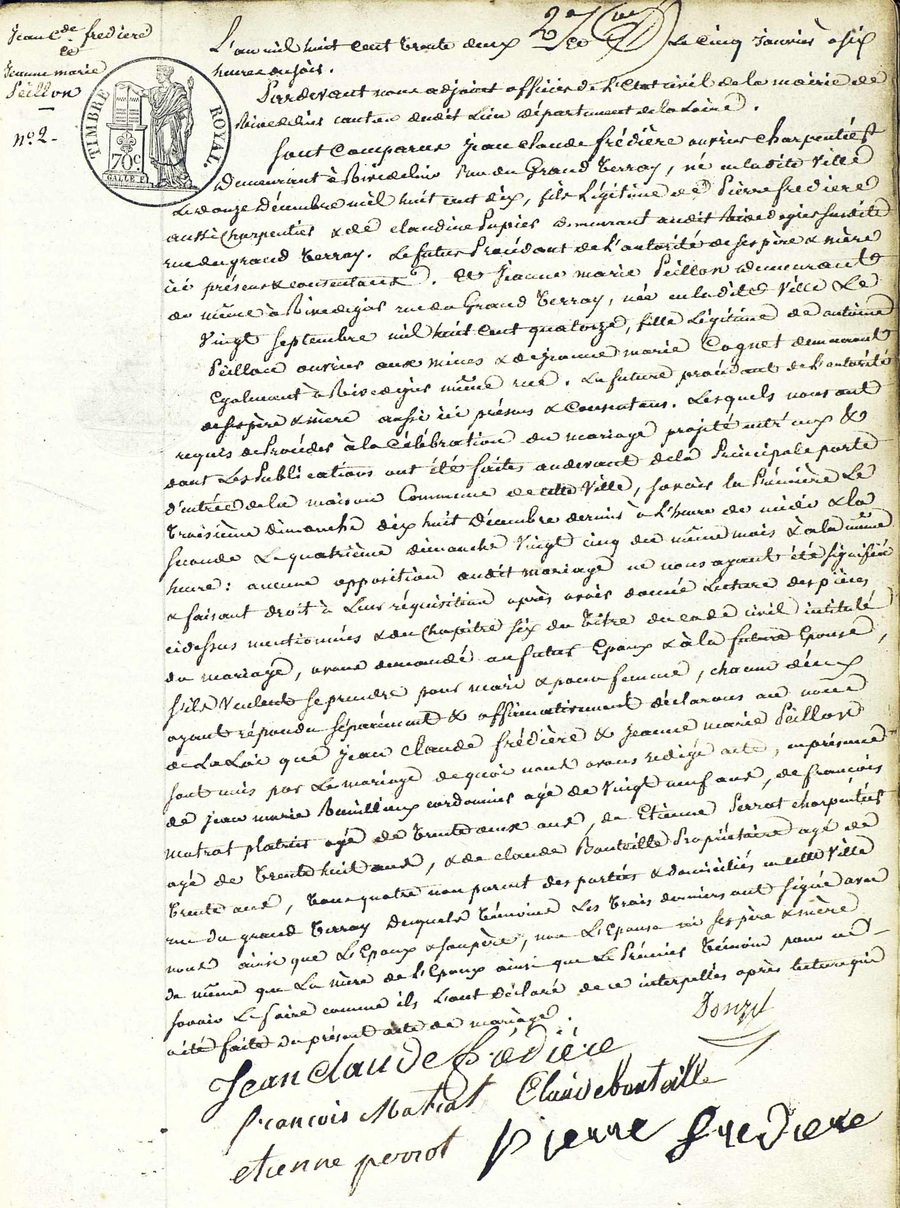 Jean C.de fredière
et
Jeanne marie
Peillon
n.o 2.
TIMBRE ROYAL.
70c
L'an mil huit cent trente deux & Le cinq Janvier à six
heures du soir.
Pardevant nous adjoint officier de L'Etat civil de la mairie de
Rivedegier canton dudit Lieu département de la Loire.
Sont comparus jean claude frédière ouvrier charpentier
Demeurant à Rivedegier rue du Grand Terray, né en la dite Ville
Le douze Décembre mil huit cent dix, fils Légitime de Pierre fredière
aussi charpentier & de claudine Papier demeurant audit Rivedegier susdite
rue du grand Terray. Le futur Procédant de L'autorité de ses père & mère
ici présens & consentans. Et Jeanne marie Peillon demeurant
de même à Rivedegier rue du Grand Terray, née en ladite Ville Le
Vingt septembre mil huit cent quatorze, fille Légitime de antoine
Peillon ouvrier aux mines & de jeanne marie Cognet demeurant
Egalement à Rivedegier même rue. La future procédant de L'autorité
de ses père & mère aussi ici présens & consentans. Lesquels nous ont
requis de Procéder à la Célébration du mariage projeté entr'eux &
dont Les Publications ont été faites au devant de la Principale porte
d'entrée de la maison Commune de cette Ville, savoir la Première Le
troisième dimanche dix huit Décembre dernier à L'heure de midi & la
seconde Le quatrième dimanche Vingt cinq du même mois & à la même
heure: aucune opposition audit mariage ne nous ayant été signifiée
& faisant droit à Leur réquisition après avoir donné Lecture des pièces
cidessus mentionnées & du Chapitre six du titre du code civil intitulé
du mariage, avons demandé au futur Epoux & à la future Epouse,
s'ils Veulent se prendre pour mari & pour femme, chacun d'eux
ayant répondu séparément & affirmativement déclarons au nom
de La Loi que jean claude frédière & jeanne marie Peillon
sont unis par Le mariage de quoi nous avons redigé acte, en présence
de jean marie cordonnier agé de Vingt neuf ans, de françois
matrat platrier agé de trente deux ans, de Etienne Perrot charpentier
agé de trente huit ans, & de claude Bouteille Propriétaire agé de
trente ans, tous quatre non parent des parties & domiciliés en cette Ville
rue du grand Terray desquels témoins Les trois derniers ont signé avec
nous ainsi que L'Epoux & son père, non L'Epouse ni ses père & mère
de même que La mère de L'Epoux ainsi que Le Prémier témoin pour ne
savoir Le faire comme ils L'ont Déclaré de ce interpellés après lecture qui
a été faite du présent acte de mariage.
Donzel
Jean claude frédière
françois Matrat Claude bouteille
etienne perrot pierre fredière